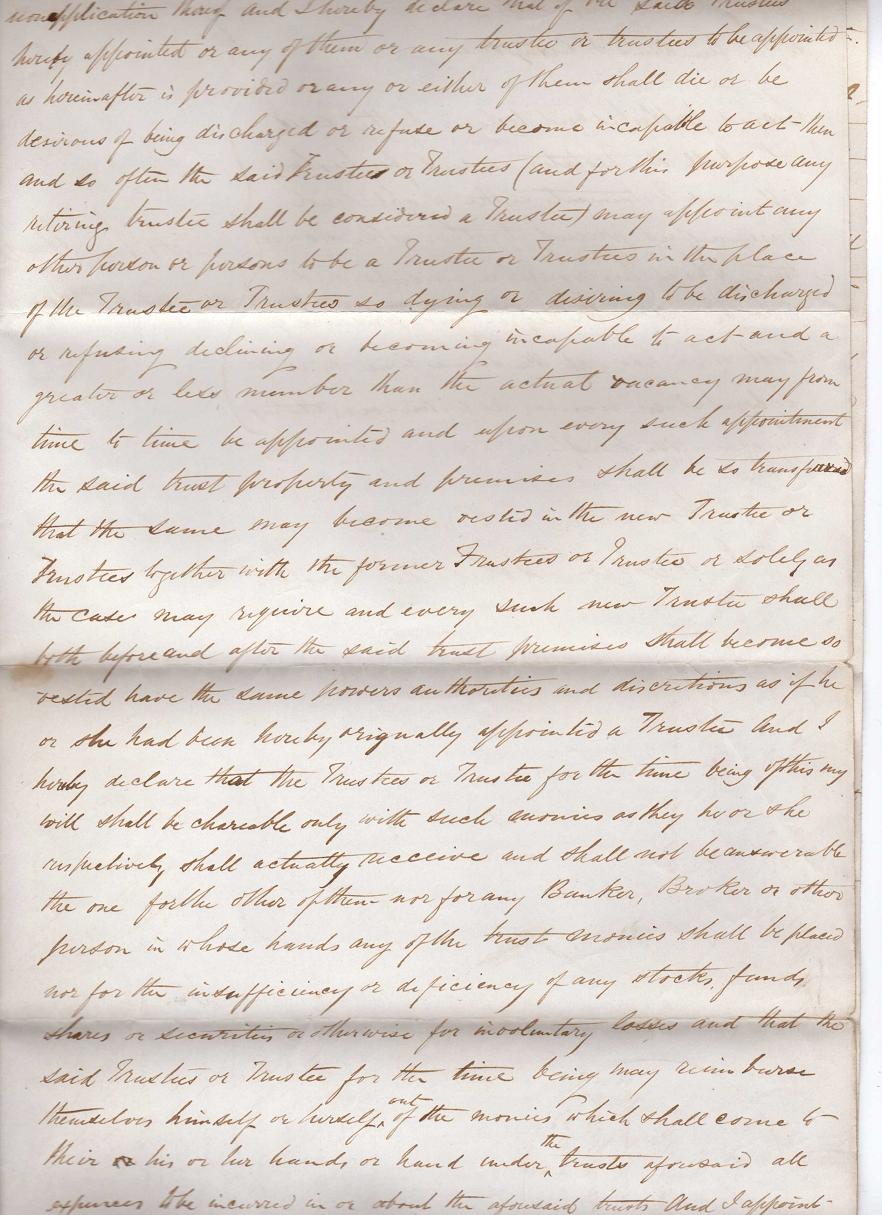 nonapplication thereof and I hereby declare that if the said Trustees
hereby appointed or any of them or any trustee or trustees to be appointed
as hereinafter is provided or any or either of them shall die or be
desirous of being discharged or refuse or become incapable to act then
and so often the said Trustees or Trustees (and for this purpose any
retiring trustee shall be considered a Trustee) may appoint any
other person or persons to be a Trustee or Trustees in the place
of the Trustee or Trustees so dying or desiring to be discharged
or refusing declining or becoming incapable to act and a
greater or less number than the actual vacancy may from
time to time be appointed and upon every such appointment
the said trust property and premises shall be so transferred
that the same may become vested in the new Trustee or
Trustees together with the former Trustees or Trustee or solely as
the case may require and every such new Trustee shall
both before and after the said trust premises shall become so
vested have the same powers authorities and discretions as if he
or she had been hereby orignally appointed a Trustee And I
hereby declare that the Trustees or Trustee for the time being of this my
will shall be chareable only with such monies as they he or she
respectively shall actually receeive and shall not be answerable
the one for the other of them nor for any Banker, Broker or other
person in whose hands any of the trust monies shall be placed
nor for the insufficiency or deficiency of any stocks, funds
shares or securities or otherwise for involuntary losses and that the
said Trustees or Trustee for the time being may reimburse
themselves himself or herself out of the monies which shall come to
their or his or her hands or hand under the trusts aforesaid all
expences to be incurred in or about the aforesaid trusts And I appoint